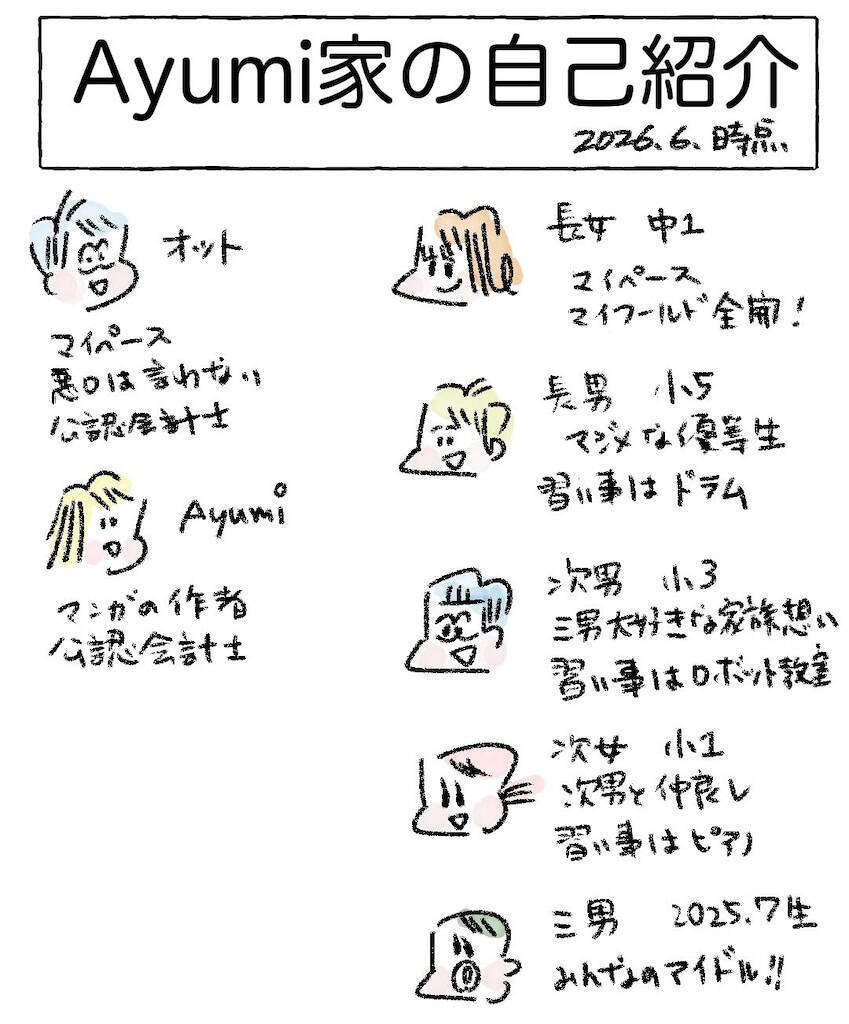 Ayumi家の自己紹介
2026.6.時点
オット
マイペース
悪口は言わない
公認会計士
Ayumi
マンガの作者
公認会計士
長女 中1
マイペース
マイワールド全開!
長男 小5
マジメな優等生
習い事はドラム
次男 小3
三男大好きな家族想い
習い事はロボット教室
次女 小1
次男と仲良し
習い事はピアノ
三男 2025.7生
みんなのアイドル!!